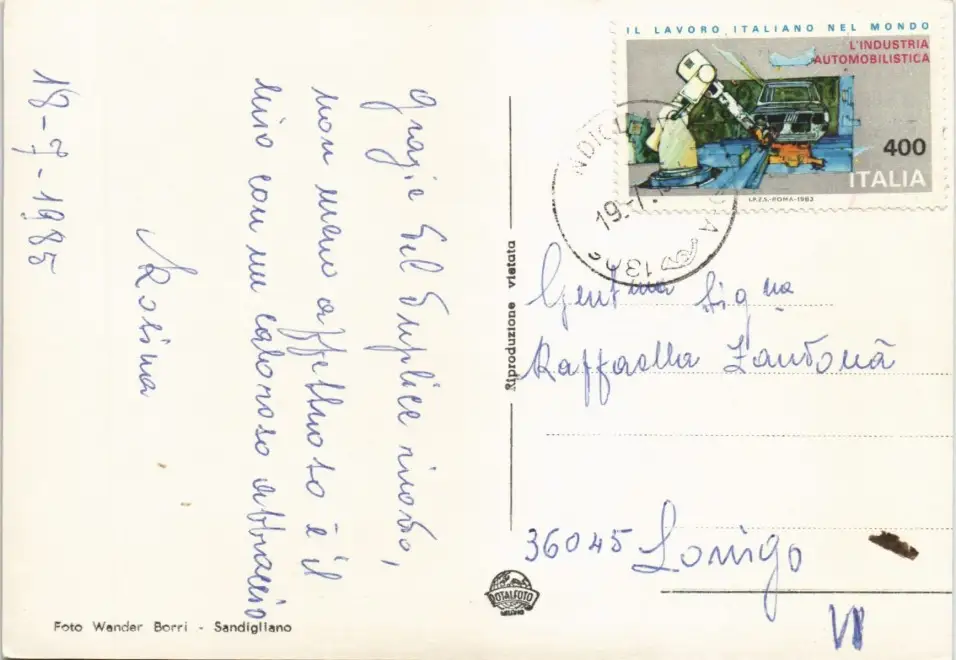 18-7-1985
Grazie del duplice ricordo,
non meno affettuoso è il
mio con un caloroso abbraccio
Rosina
Foto Wander Borri - Sandigliano
Riproduzione vietata
ROTALFOTO
MILANO
IL LAVORO ITALIANO NEL MONDO
L'INDUSTRIA
AUTOMOBILISTICA
400
ITALIA
I.P.Z.S.-ROMA-1983
19.-7.
Gent ma Sig na
Raffaella Zandonà
36045 Lonigo
VI